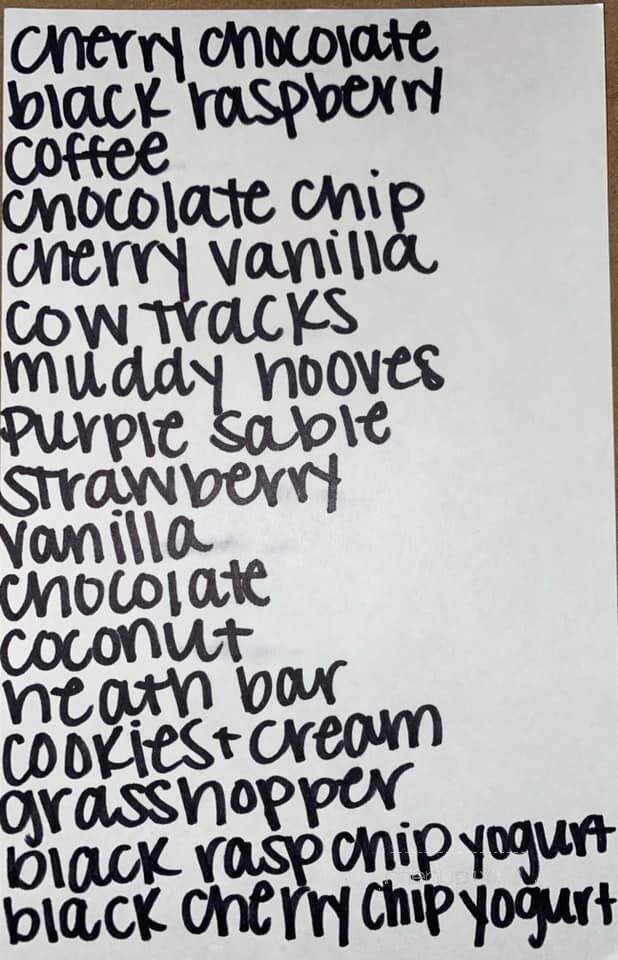 cherry chocolate
black raspberry
coffee
chocolate chip
cherry vanilla
cow tracks
muddy hooves
Purple Sable
strawberry
vanilla
chocolate
coconut
heath bar
cookies+cream
grasshopper
black rasp chip yogurt
black cherry chip yogurt